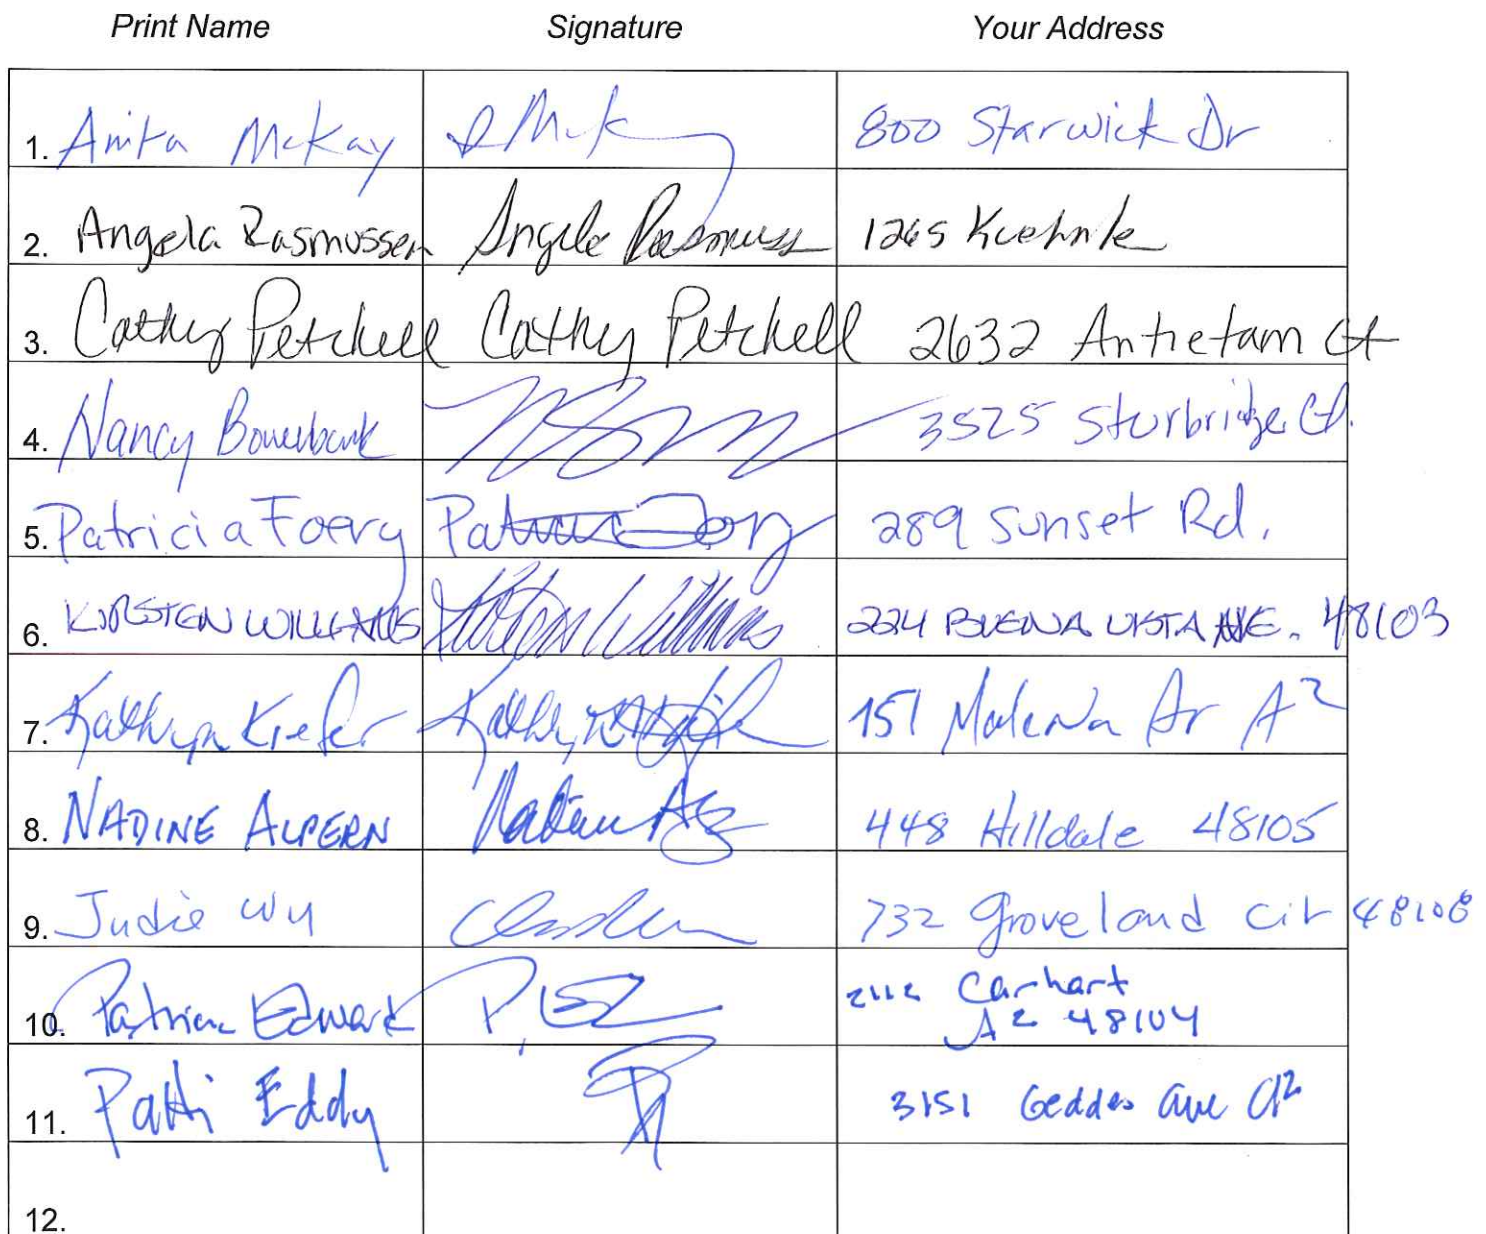 Print Name Signature Your Address
1. Anita McKay 800 Starwick Dr
2. Angela Rasmussen Angela Rasmuss 1265 Kuehnle
3. Cathy Petchell Cathy Petchell 2632 Antietam Ct
4. Nancy Bowerbank 3525 Sturbridge Ct.
5. Patricia Foery 289 Sunset Rd.
6. KIRSTEN WILLIAMS Kirsten Williams 2214 BUENA VISTA AVE. 48103
7. Kathryn Kiefer 151 Dr A2
8. NADINE ALPERN 448 Hilldale 48105
9. Judie Wu 732 Groveland cir 48108
10. Patricia Edward 2112 Carhart
A2 48104
11. Patti Eddy 3151 Geddes Ave A2
12.